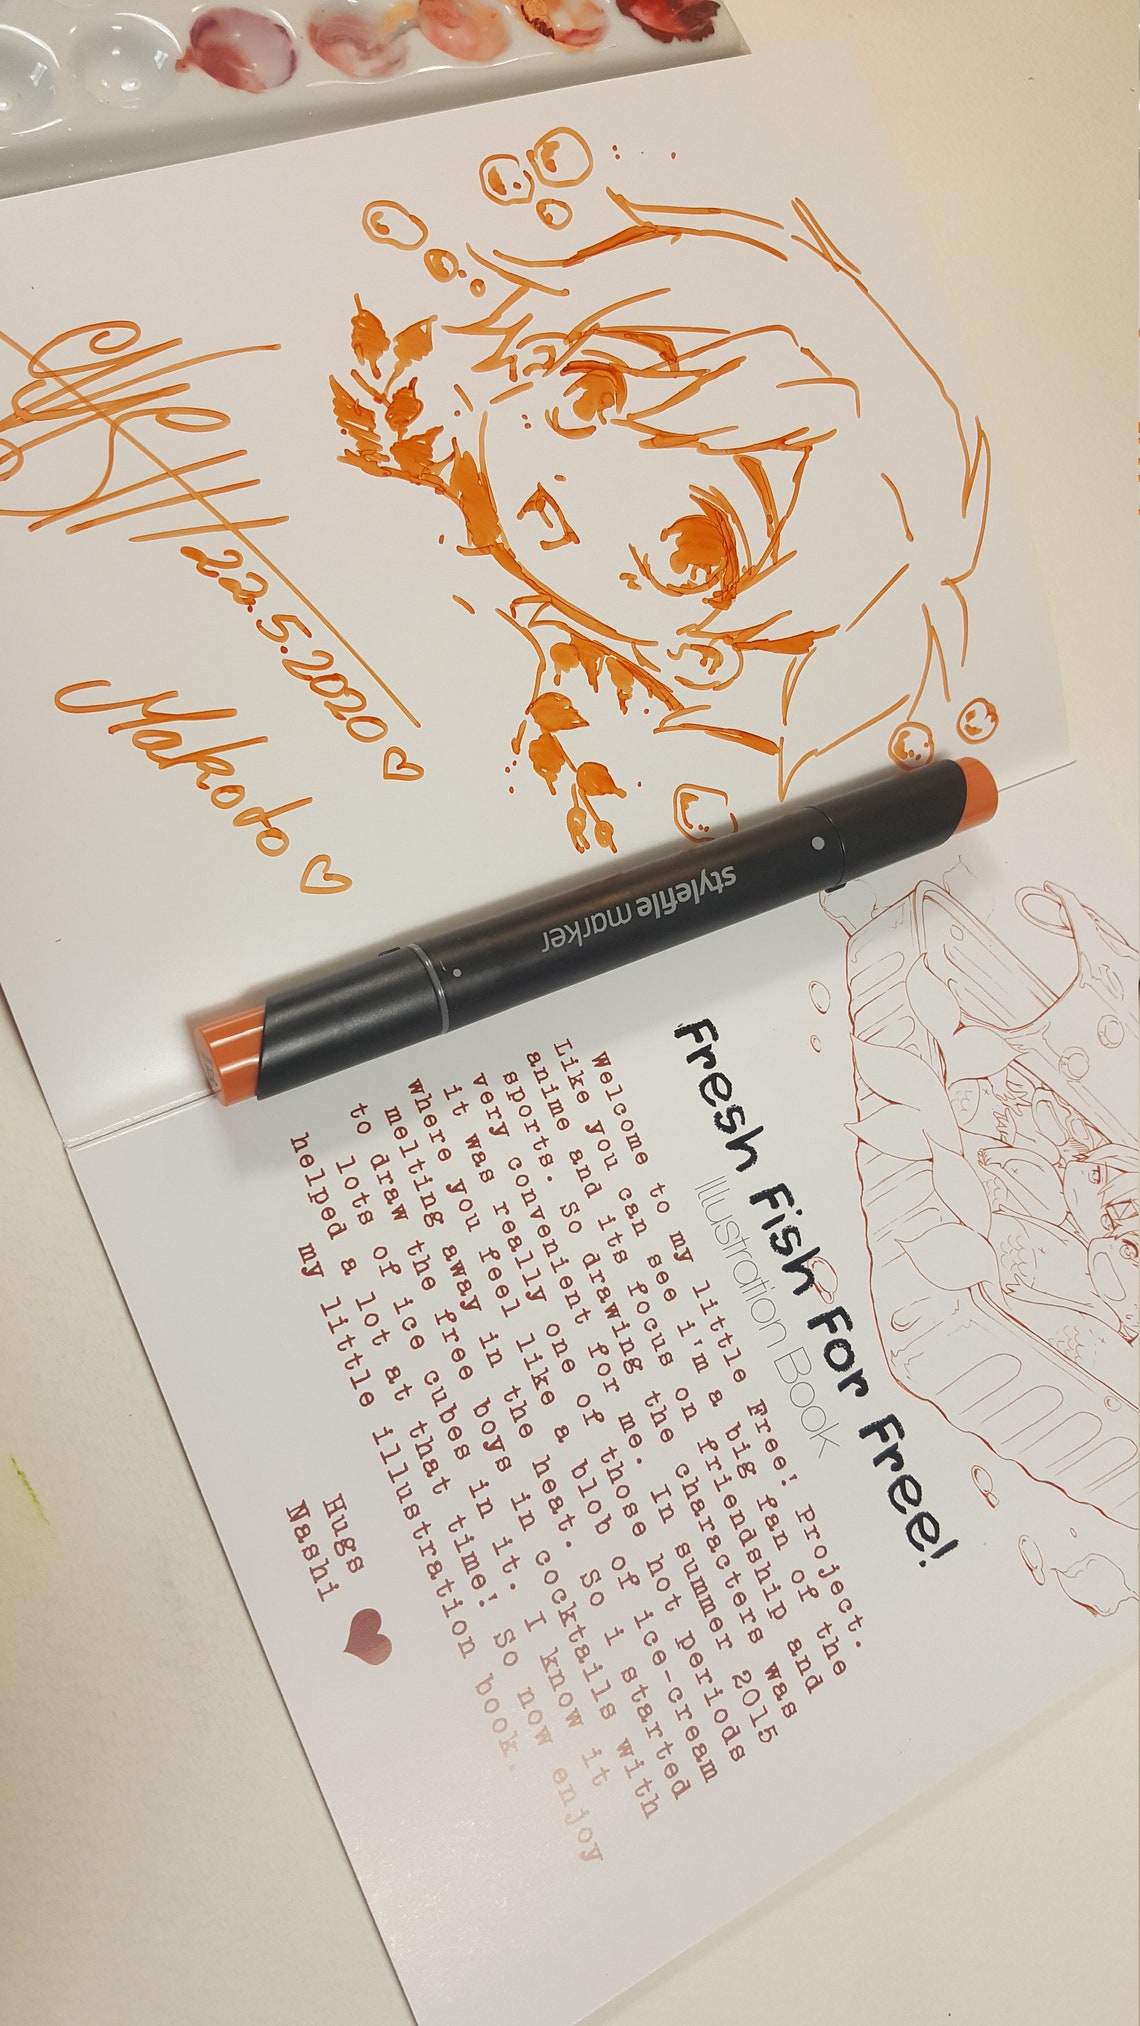 22.5.2020
Makoto
stylefile marker
Fresh Fish For Free!
Illustration Book
Welcome to my little Free! Project.
Like you can see i'm a big fan of the
anime and its focus on friendship and
sports. So drawing the characters was
very convenient for me. In summer 2015
it was really one of those hot periods
where you feel like a blob of ice-cream
melting away in the heat. So i started
to draw the free boys in cocktails with
lots of ice cubes in it. I know it
helped a lot at that time! So now enjoy
my little illustration book.
Hugs
Nashi